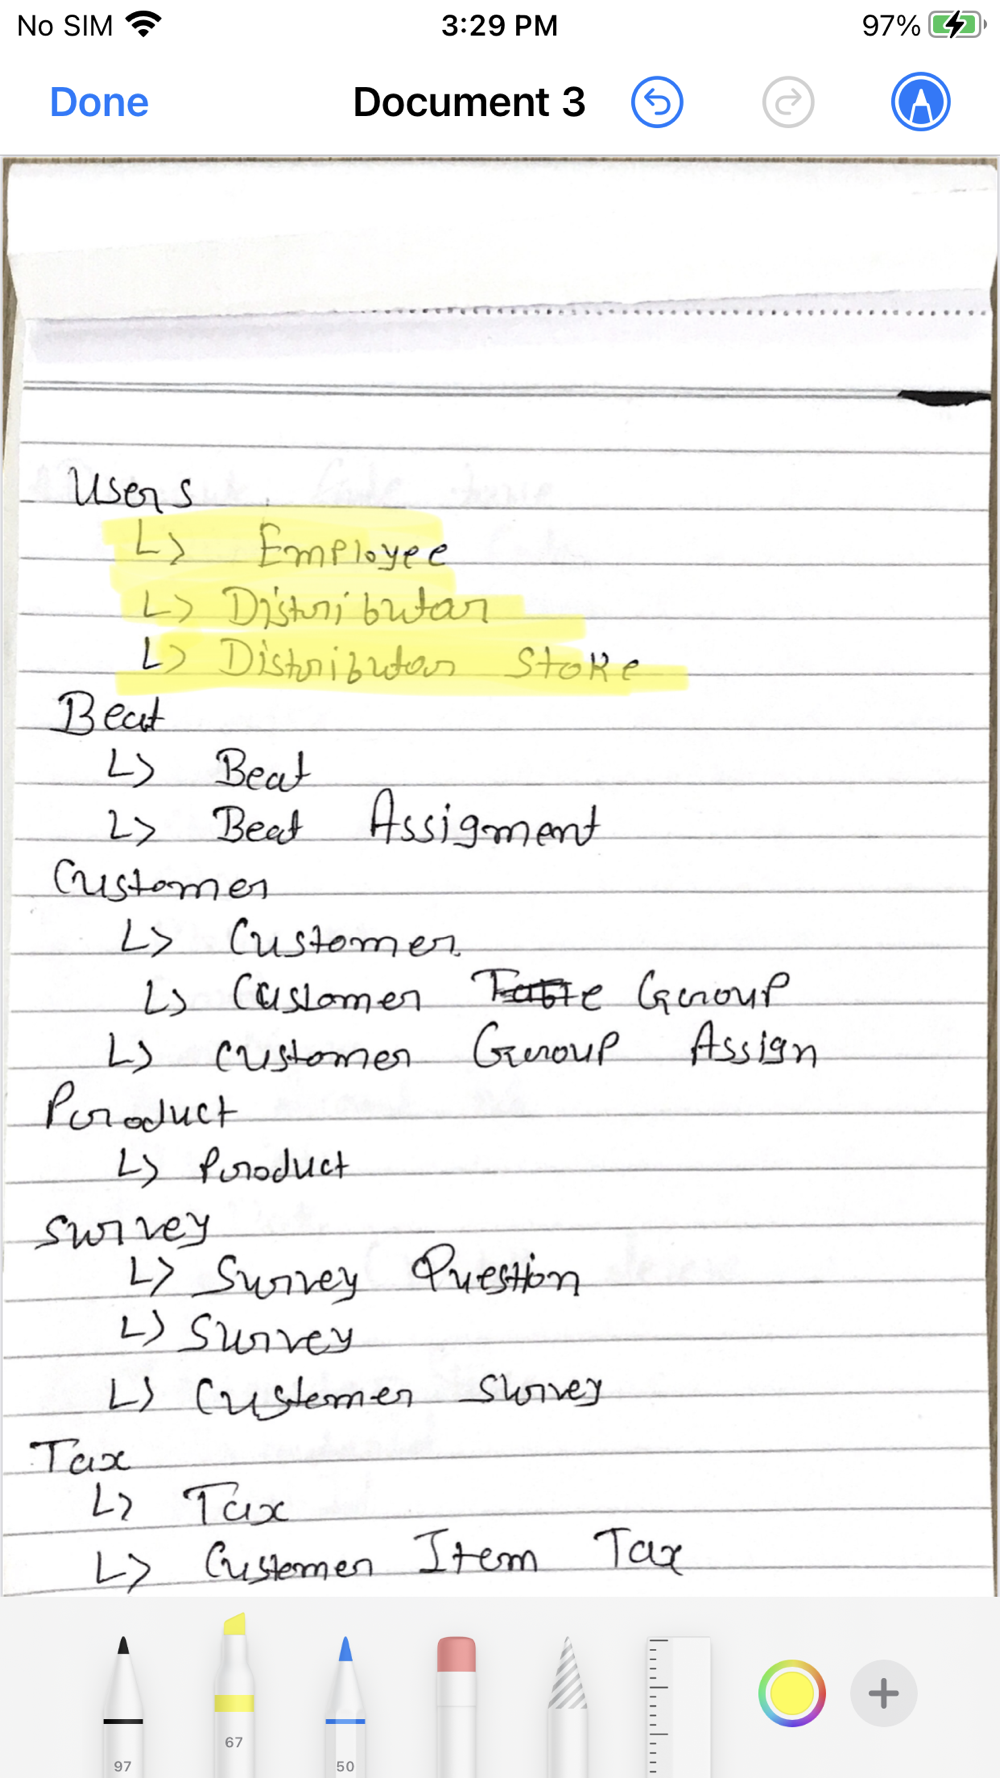 No SIM 3:29 PM 97%
Done Document 3
Users
↳ Employee
↳ Distributor
↳ Distributor Store
Beat
↳ Beat
↳ Beat Assigment
Customer
↳ Customer
↳ Customer Group
↳ Customer Group Assign
Product
↳ Product
Survey
↳ Survey Question
↳ Survey
↳ Customer Survey
Tax
↳ Tax
↳ Customer Item Tax
97 67 50